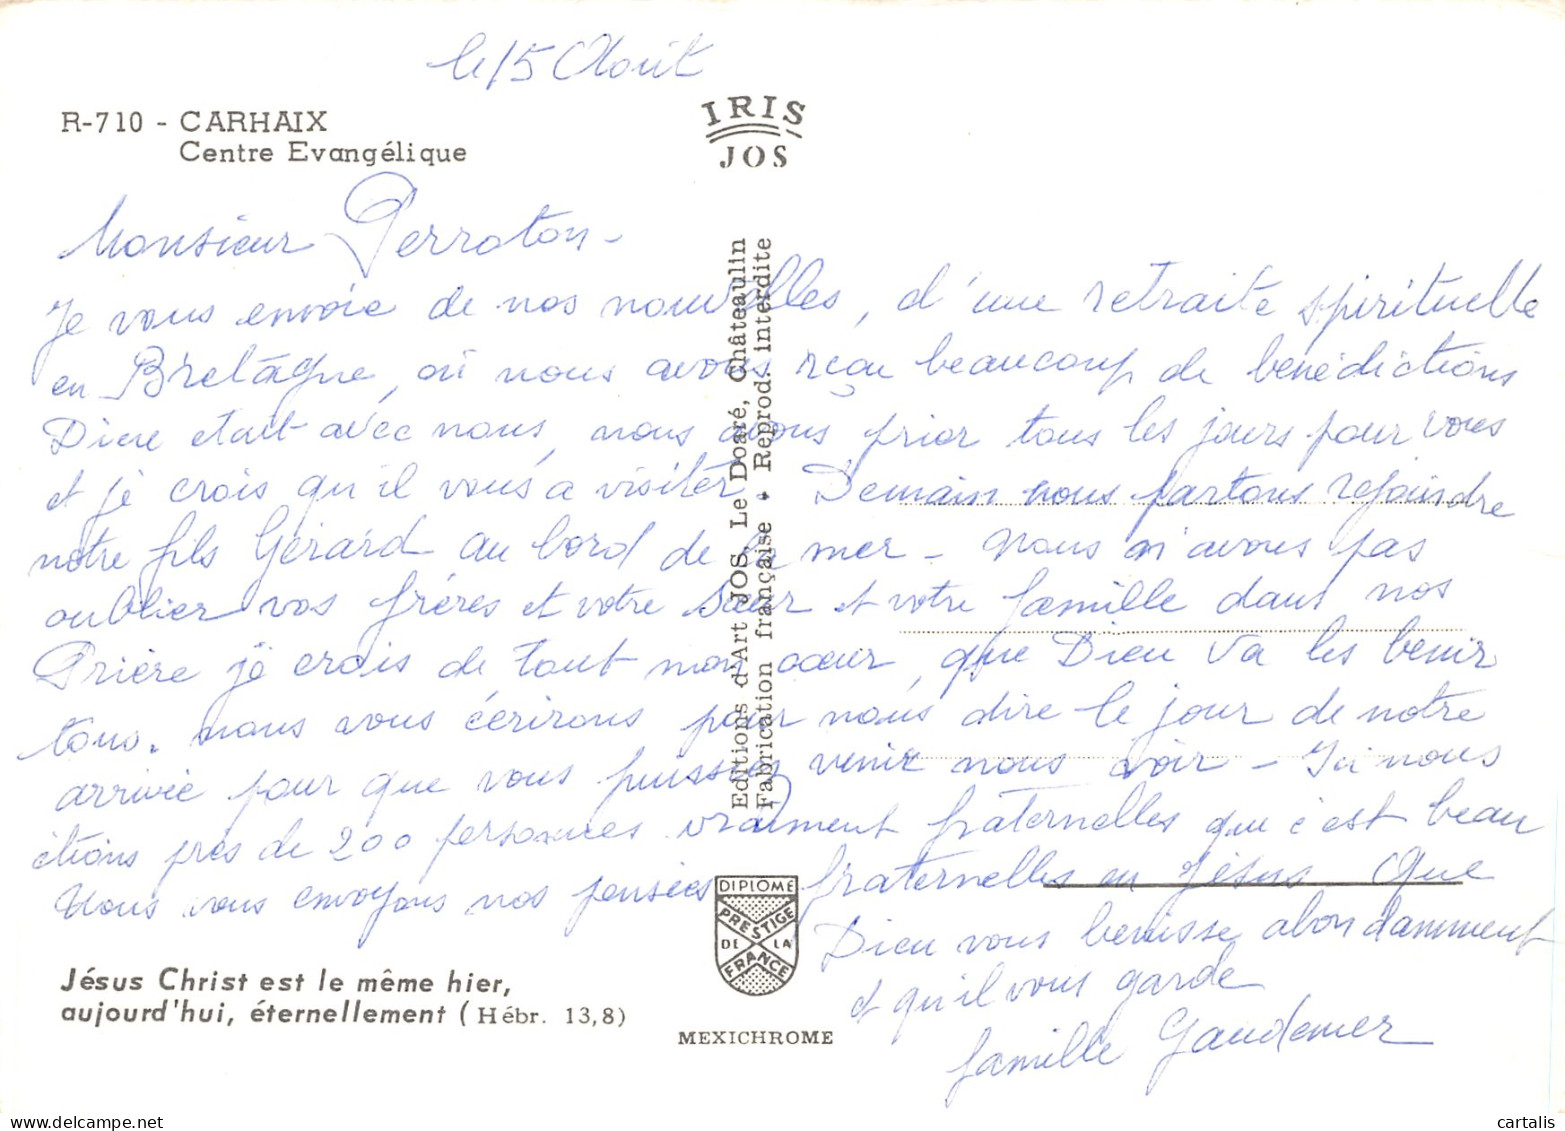 le 15 Août
R-710 - CARHAIX
Centre Evangélique
IRIS
JOS
Monsieur Perroton -
Je vous envoie de nos nouvelles, d'une retraite spirituelle
en Bretagne, où nous avons reçu beaucoup de bénédictions
Dieu était avec nous, nous avons prier tous les jours pour vous
et je crois qu'il vous a visiter. Demain nous partons rejoindre
notre fils Gérard au bord de la mer - nous n'avons pas
oublier vos frères et votre sœur et votre famille dans nos
Prière je crois de tout mon cœur, que Dieu va les benir
tous. nous vous écrirons pour nous dire le jour de notre
arrivée pour que vous puissiez venir nous voir - Ici nous
étions près de 200 personnes vraiment fraternelles que c'est beau
Nous vous envoyons nos pensées fraternelles en Jésus Que
Dieu vous benisse abondamment
et qu'il vous garde
famille Gaudemer
Editions d'Art JOS, Le Doaré, Châteaulin
Fabrication française • Reprod. interdite
DIPLOME
PRESTIGE
DE LA
FRANCE
Jésus Christ est le même hier,
aujourd'hui, éternellement (Hébr. 13,8)
MEXICHROME
delcampe.net
cartalis